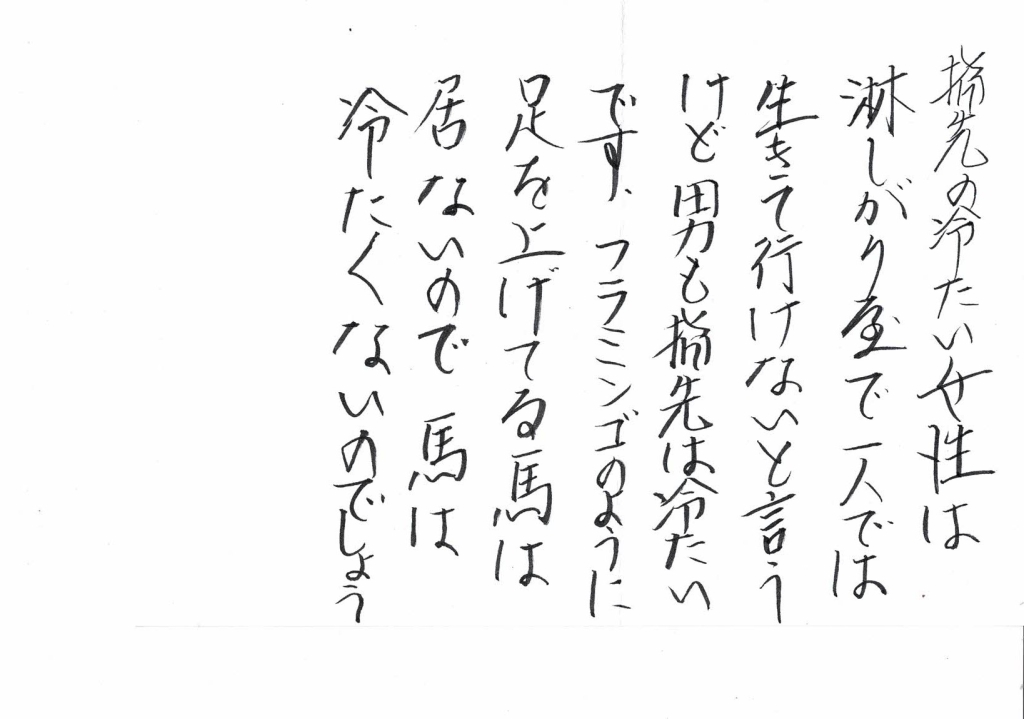 指先の冷たい女性は
淋しがり屋で一人では
生きて行けないと言う
けど男も指先は冷たい
です、フラミンゴのように
足を上げてる馬は
居ないので 馬は
冷たくないのでしょう